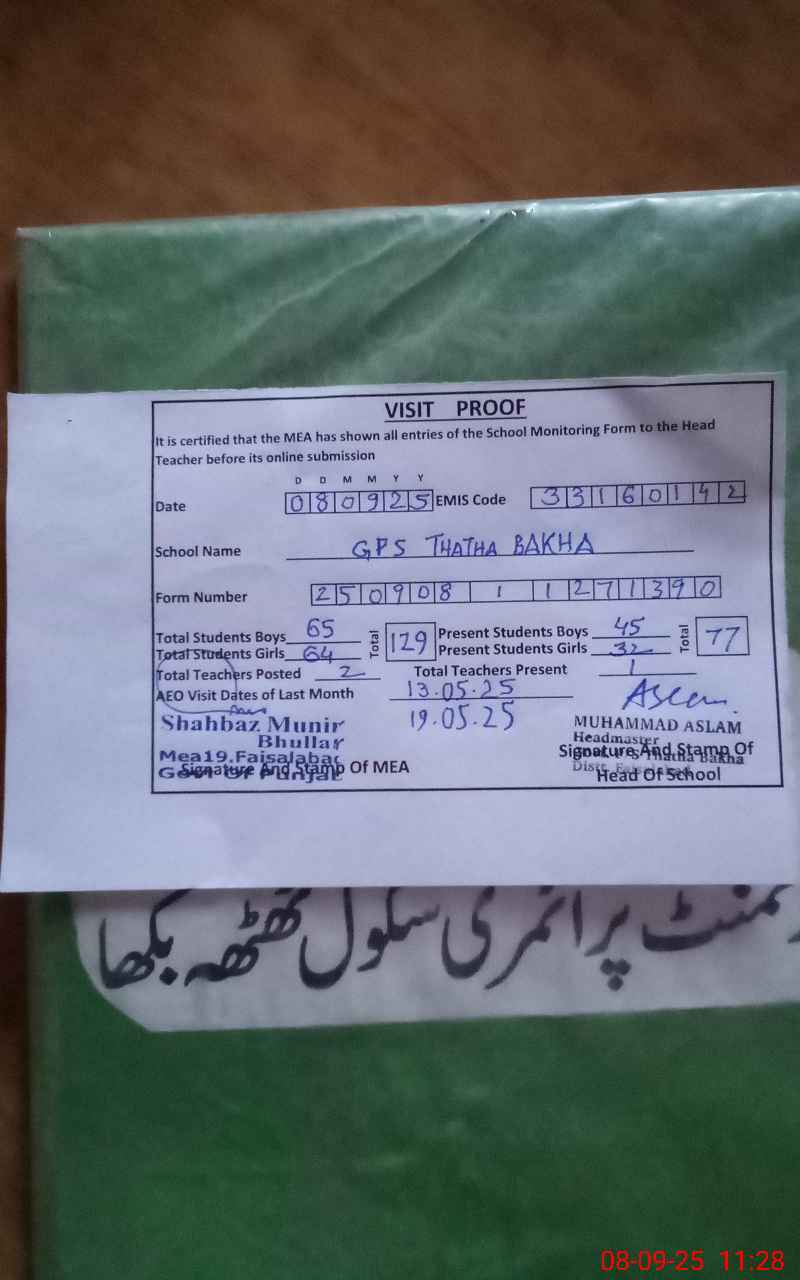 VISIT PROOF
It is certified that the MEA has shown all entries of the School Monitoring Form to the Head
Teacher before its online submission
D D M M Y Y
Date 080925 EMIS Code 33160142
School Name GPS THATHA BAKHA
Form Number 250908 1 1271390
Total Students Boys 65 Total 129 Present Students Boys 45 Total 77
Total Students Girls 64 Present Students Girls 32
Total Teachers Posted 2 Total Teachers Present 1
AEO Visit Dates of Last Month 13.05.25
19.05.25
Aslam
Shahbaz Munir
Bhullar
Mea19.Faisalabad
Govt Of Punjab
Signature And Stamp Of MEA
MUHAMMAD ASLAM
Headmaster
Thatha Bakha
Distt. Faisalabad
Signature And Stamp Of
Head Of School
پرائمری سکول ٹھٹھہ بکھا
08-09-25 11:28